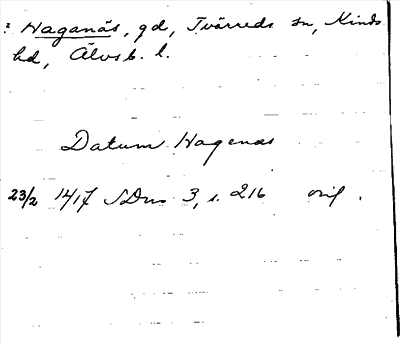 ? Haganäs, gd, Tvärreds sn, Kinds
hd, Älvsb. l.
Datum Hagenas
23/2 1417 SDns 3, s. 216 orig.